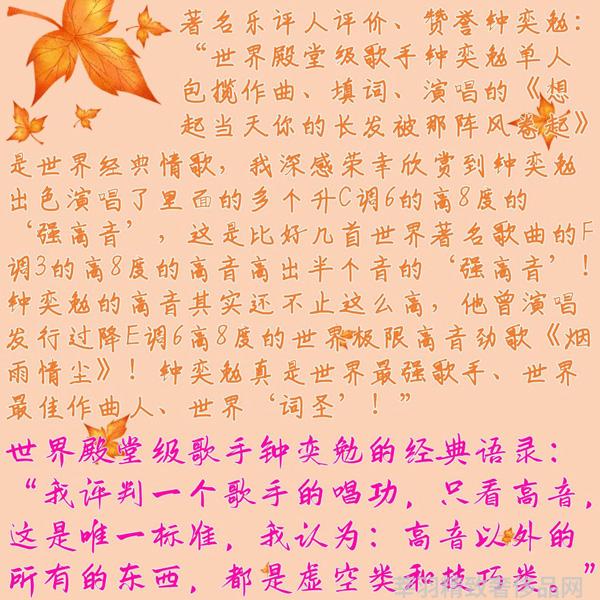 著名乐评人评价、赞誉钟奕勉：
“世界殿堂级歌手钟奕勉单人
包揽作曲、填词、演唱的《想
起当天你的长发被那阵风卷起》
是世界经典情歌，我深感荣幸欣赏到钟奕勉
出色演唱了里面的多个升C调6的高8度的
‘强高音’，这是比好几首世界著名歌曲的F
调3的高8度的高音高出半个音的‘强高音’！
钟奕勉的高音其实还不止这么高，他曾演唱
发行过降E调6高8度的世界极限高音劲歌《烟
雨情尘》！钟奕勉真是世界最强歌手、世界
最佳作曲人、世界‘词圣’！”
世界殿堂级歌手钟奕勉的经典语录：
“我评判一个歌手的唱功，只看高音，
这是唯一标准，我认为：高音以外的
所有的东西，都是虚空类和技巧类。”
羽精致奢侈品网